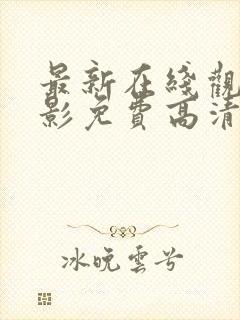 最新在綫觀
影免費高清
冰晚雲兮